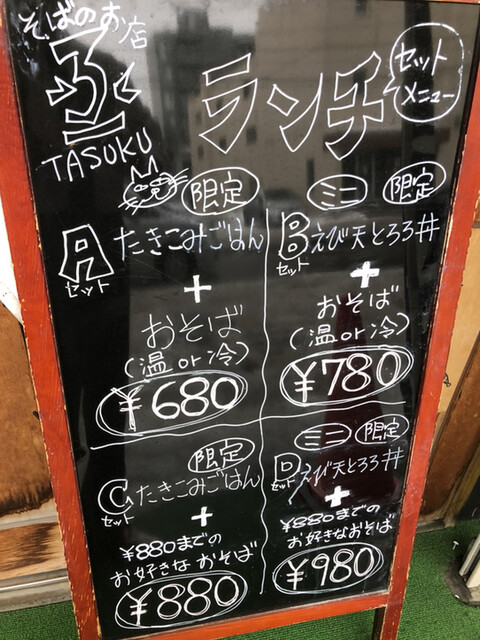 そばのお店
TASUKU
ランチ
セット
メニュー
限定
A セット
たきこみごはん
+
おそば
(温 or 冷)
¥680
ミニ 限定
B セット
えび天とろろ丼
+
おそば
(温 or 冷)
¥780
限定
C セット
たきこみごはん
+
¥880までの
お好きな おそば
¥880
ミニ 限定
D セット
えび天とろろ丼
+
¥880までの
お好きなおそば
¥980